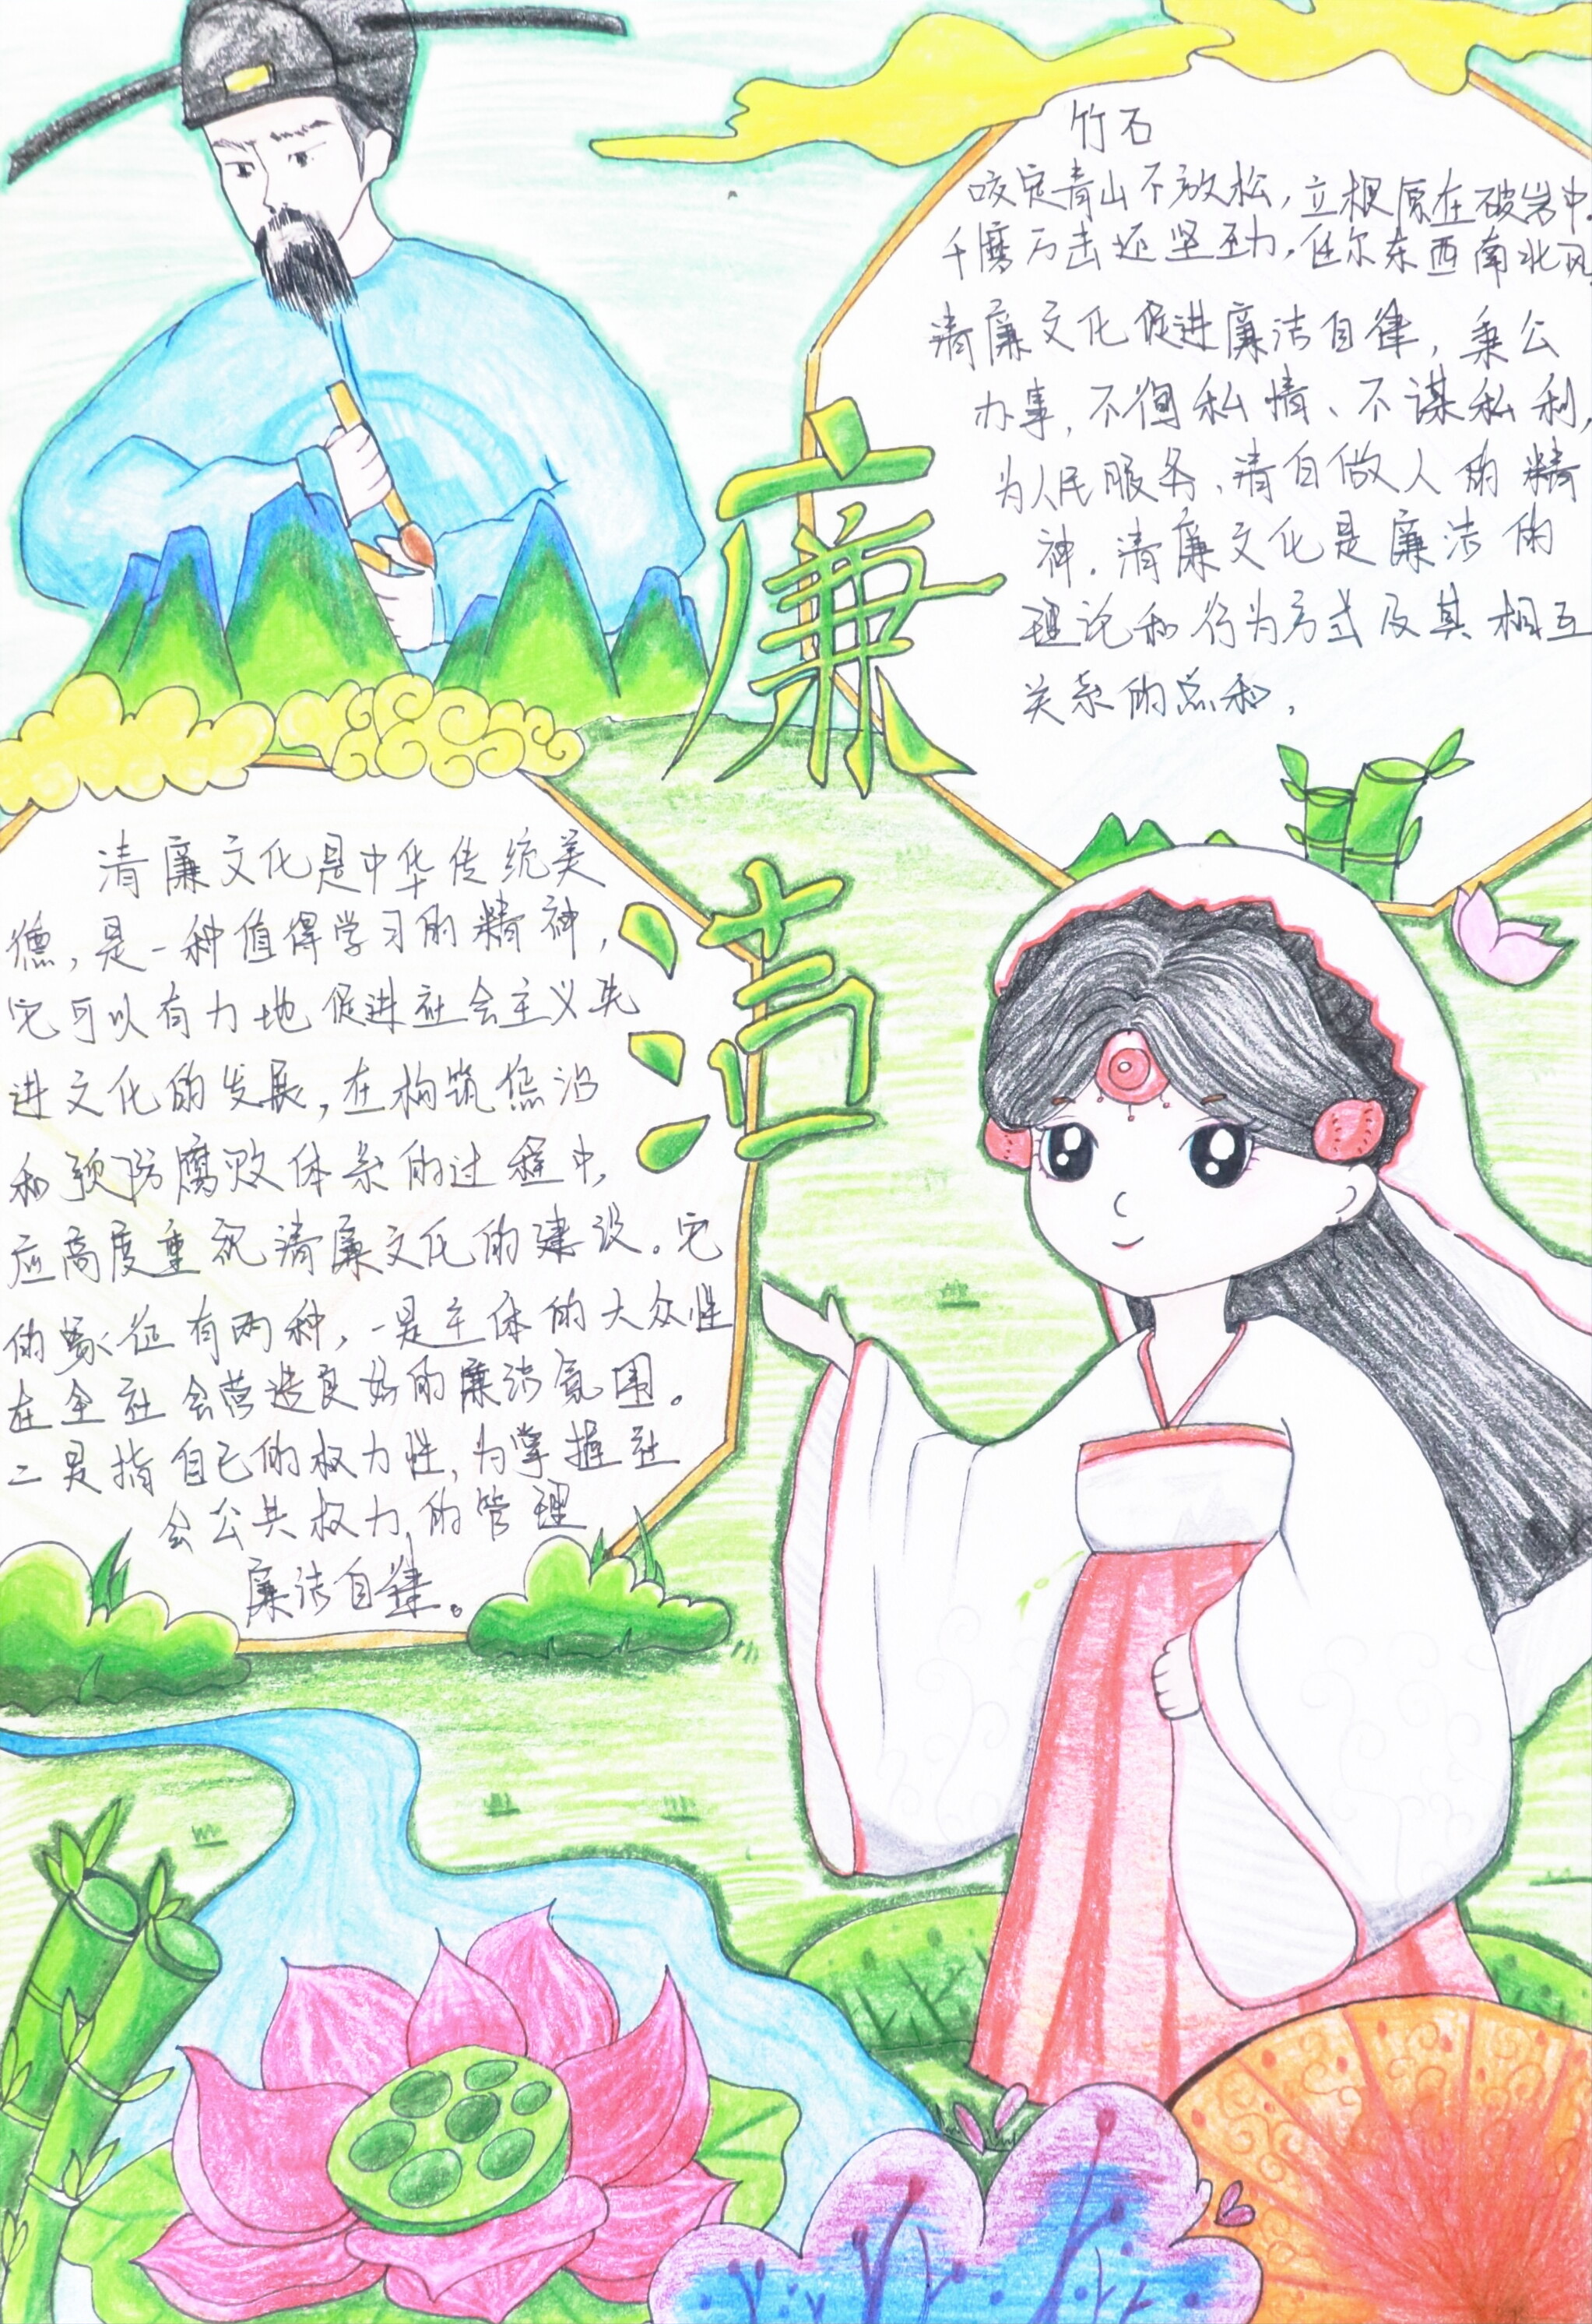 竹石
咬定青山不放松,立根原在破岩中.
千磨万击还坚劲,任尔东西南北风
清廉文化促进廉洁自律,秉公
办事,不徇私情、不谋私利,
为人民服务、清白做人的精
神.清廉文化是廉洁的
理论和行为方式及其相互
关系的总和,
廉
洁
清廉文化是中华传统美
德,是一种值得学习的精神,
它可以有力地促进社会主义先
进文化的发展,在构筑惩治
和预防腐败体系的过程中,
应高度重视清廉文化的建设。它
的象征有两种,一是主体的大众性
在全社会营造良好的廉洁氛围。
二是指自己的权力性,为掌握社
会公共权力,的管理
廉洁自律。